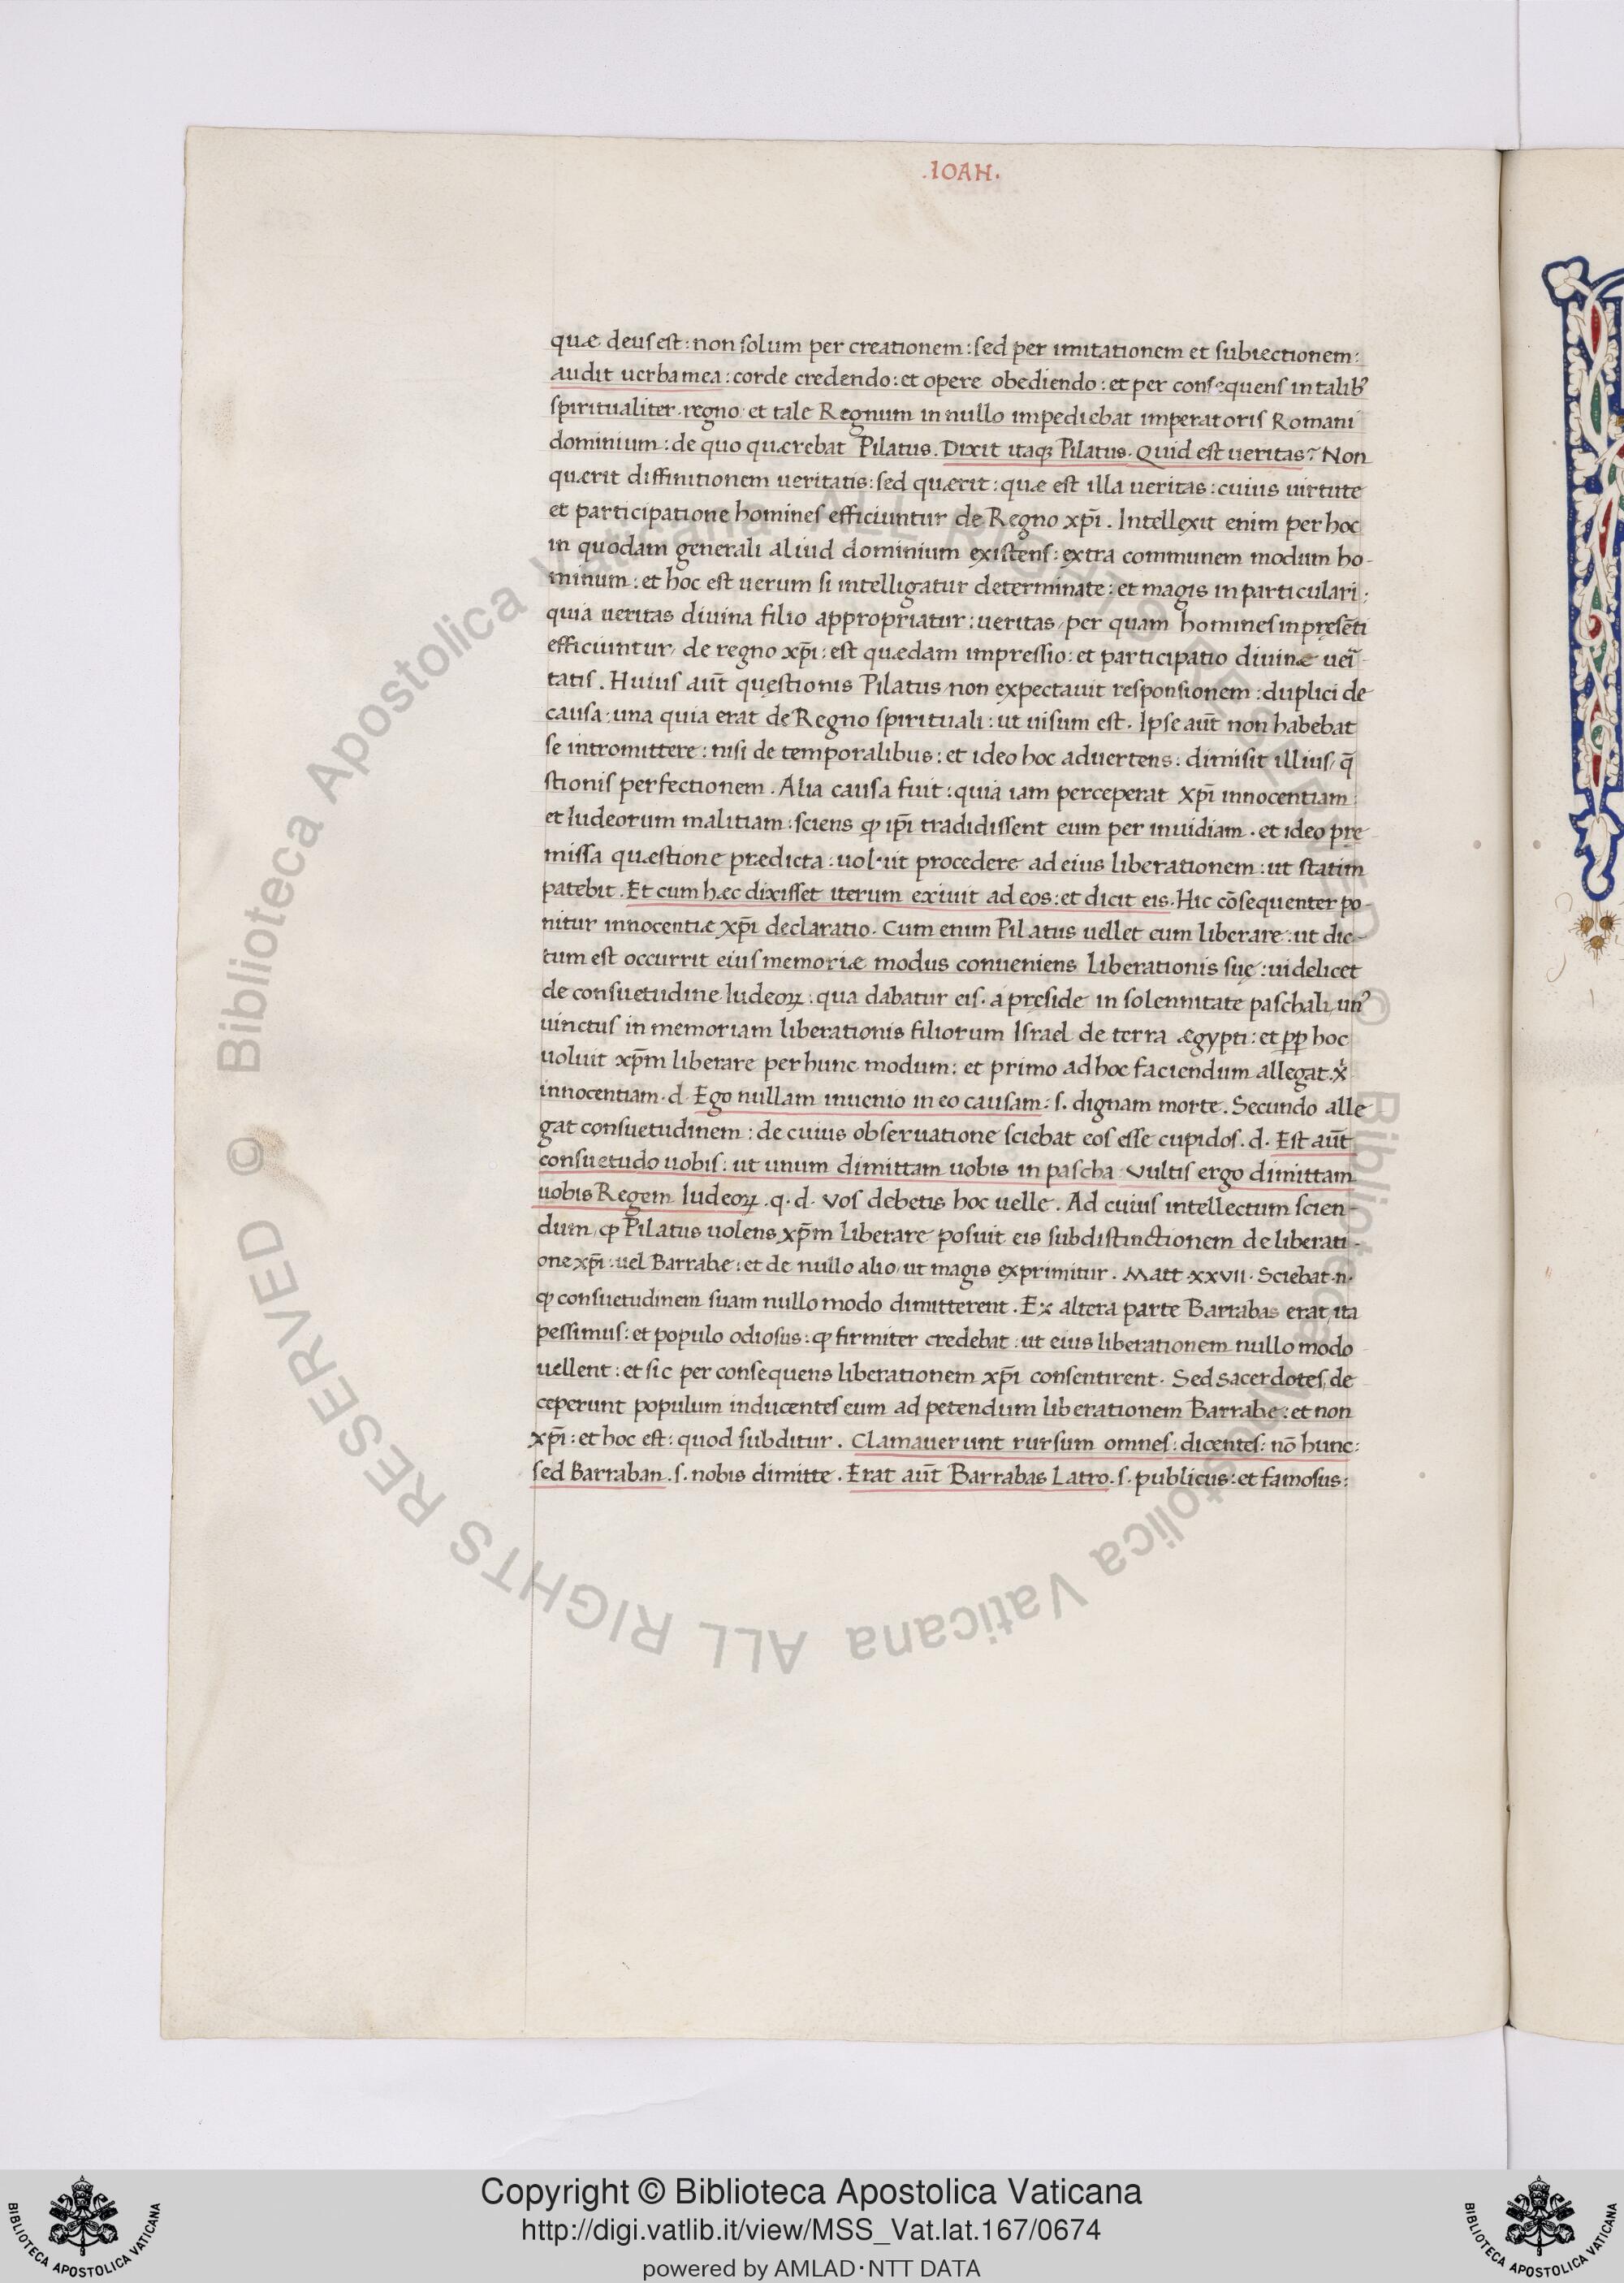 .IOAN.
quæ deus est: non solum per creationem: sed per imitationem et subiectionem:
audit uerba mea: corde credendo: et opere obediendo: et per consequens in talibꝰ
spiritualiter regno et tale Regnum in nullo impediebat imperatoris Romani
dominium: de quo quærebat Pilatus. Dixit itaqꝫ Pilatus. Quid est ueritas? Non
quærit diffinitionem ueritatis: sed quærit: quæ est illa ueritas: cuius uirtute
et participatione homines efficiuntur de Regno xp̄i. Intellexit enim per hoc
in quodam generali aliud dominium existens: extra communem modum ho-
minum: et hoc est uerum si intelligatur determinate: et magis in particulari:
quia ueritas diuina filio appropriatur: ueritas, per quam homines in presēti
efficiuntur, de regno xp̄i: est quædam impressio: et participatio diuinæ uei̅-
tatis. Huius aūt questionis Pilatus non expectauit responsionem: duplici de
causa. una quia erat de Regno spirituali: ut uisum est. Ipse aūt non habebat
se intromittere: nisi de temporalibus: et ideo hoc aduertens: dimisit illius, q̄
stionis perfectionem. Alia causa fuit: quia iam perceperat xp̄i innocentiam:
et Iudeorum malitiam: sciens ꝙ ip̄i tradidissent eum per inuidiam. et ideo pre
missa quæstione prædicta: uoluit procedere ad eius liberationem: ut statim
patebit. Et cum hæc dixisset iterum exiuit ad eos: et dicit eis. Hic cōsequenter po-
nitur innocentiæ xp̄i declaratio. Cum enim Pilatus uellet eum liberare: ut dic-
tum est occurrit eius memoriæ modus conueniens Liberationis suę: uidelicet
de consuetudine Iudeoꝝ: qua dabatur eis. a preside in solennitate paschali, unꝰ
uinctus in memoriam liberationis filiorum Israel de terra ægypti: et ꝓꝑ hoc
uoluit xp̄m liberare per hunc modum: et primo ad hoc faciendum allegat. x̄
innocentiam. d. Ego nullam inuenio in eo causam: s. dignam morte. Secundo alle
gat consuetudinem: de cuius obseruatione sciebat eos esse cupidos. d. Est aūt
consuetudo uobis: ut unum dimittam uobis in pascha. Vultis ergo dimittam
uobis Regem Iudeoꝝ. q. d. Vos debetis hoc uelle. Ad cuius intellectum scien-
dum, ꝙ Pilatus uolens xp̄m Liberare posuit eis subdistinctionem de liberati-
one xp̄i: uel Barrabæ: et de nullo alio, ut magis exprimitur. Matt. xxvii. Sciebat .n.
ꝙ consuetudinem suam nullo modo dimitterent. Ex altera parte Barrabas erat, ita
pessimus: et populo odiosus: ꝙ firmiter credebat: ut eius liberationem nullo modo
uellent: et sic per consequens liberationem xp̄i consentirent. Sed sacerdotes, de
ceperunt populum inducentes eum ad petendum liberationem Barrabe: et non
xp̄i: et hoc est: quod subditur. Clamauerunt rursum omnes: dicentes: nō hunc:
sed Barraban. s. nobis dimitte. Erat aūt Barrabas Latro. s. publicus: et famosus:
© Biblioteca Apostolica Vaticana ALL RIGHTS RESERVED
© Biblioteca Apostolica Vaticana ALL RIGHTS RESERVED
Copyright © Biblioteca Apostolica Vaticana
http://digi.vatlib.it/view/MSS_Vat.lat.167/0674
powered by AMLAD·NTT DATA
BIBLIOTECA APOSTOLICA VATICANA
BIBLIOTECA APOSTOLICA VATICANA